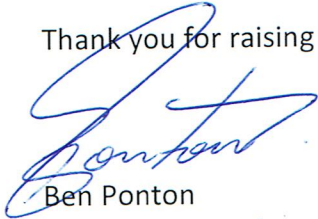 Thank you for raising
Ponton
Ben Ponton